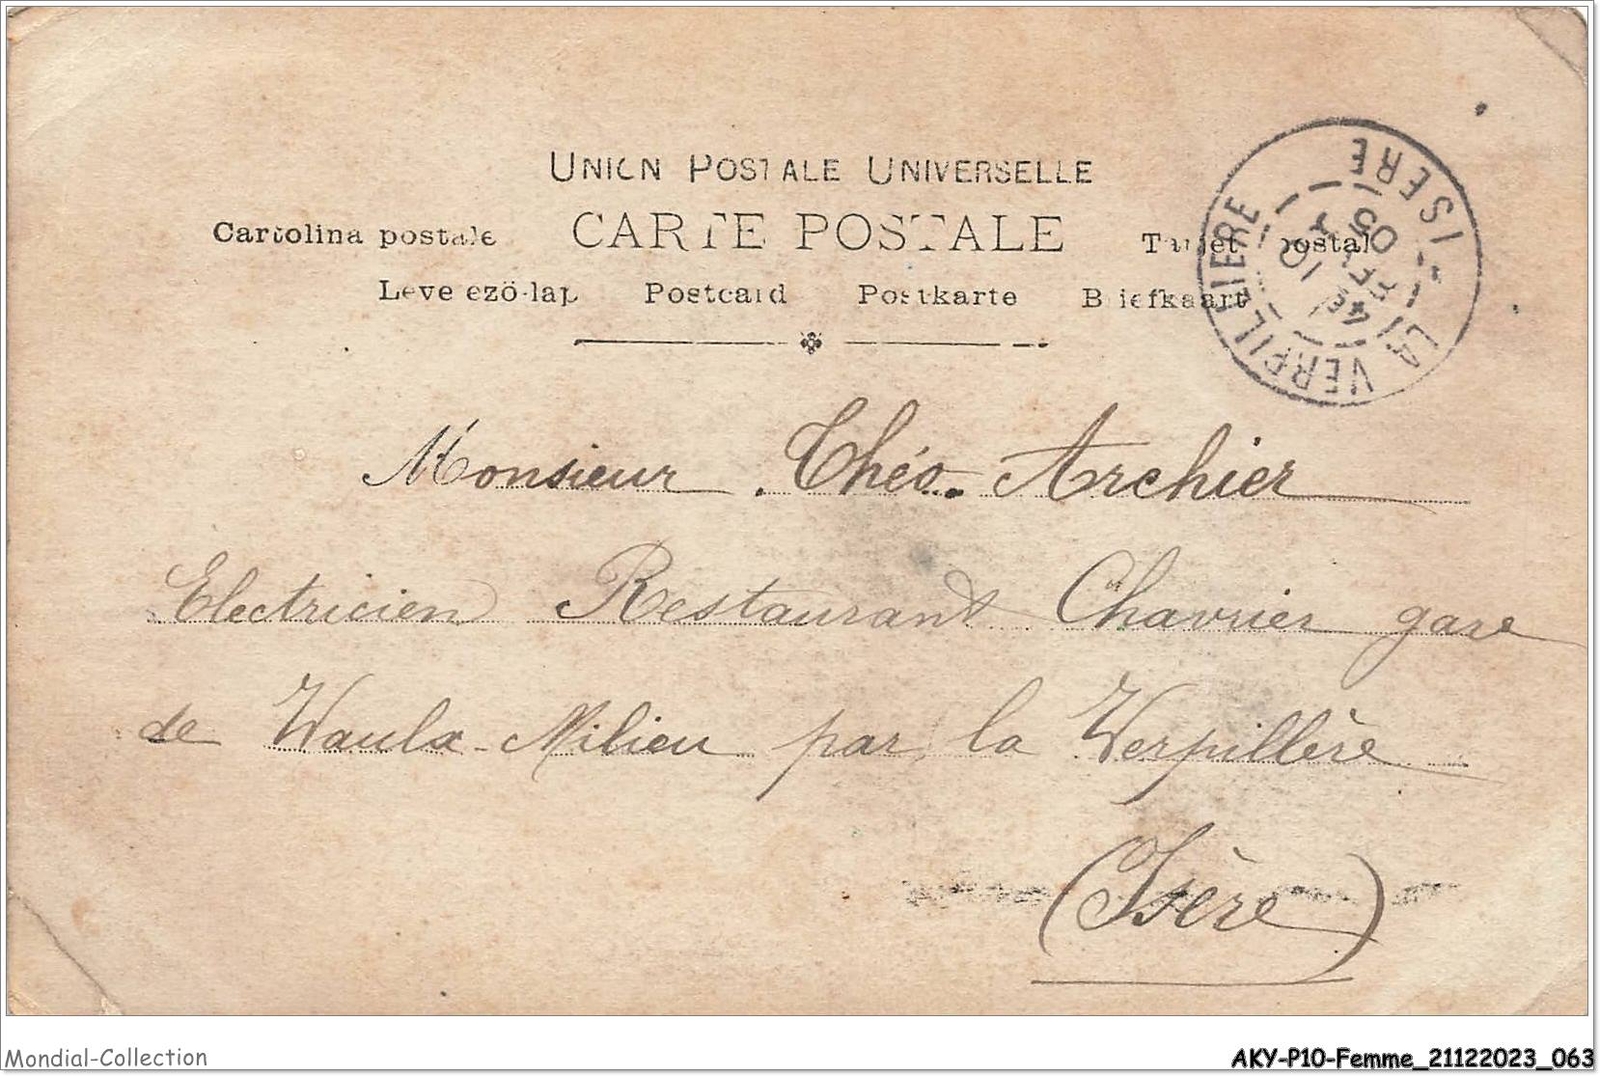 UNION POSTALE UNIVERSELLE
Cartolina postale CARTE POSTALE Tarjet postal
Leve ezö-lap Postcard Postkarte Briefkaart
LA VERPILLIERE ISERE
4E
10
FEVR
05
Monsieur Théo. Archier
Electricien Restaurant Chavrier gare
de Vaulx-Milieu par la Verpillère
(Isère)
Mondial-Collection
AKY-P10-Femme_21122023_063